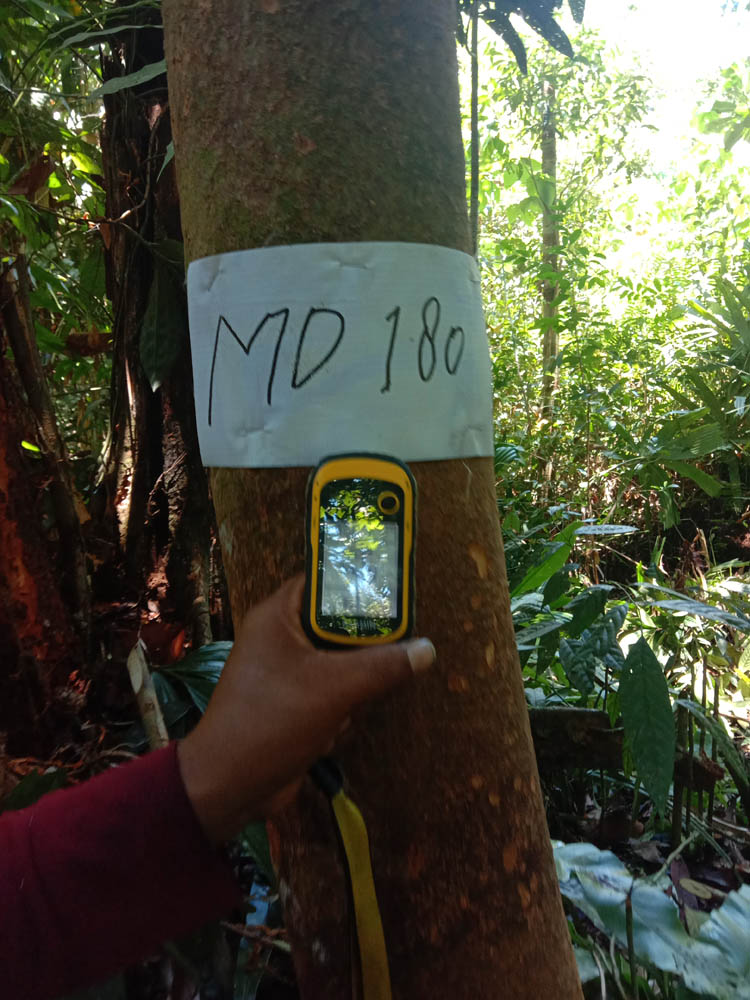 MD 180